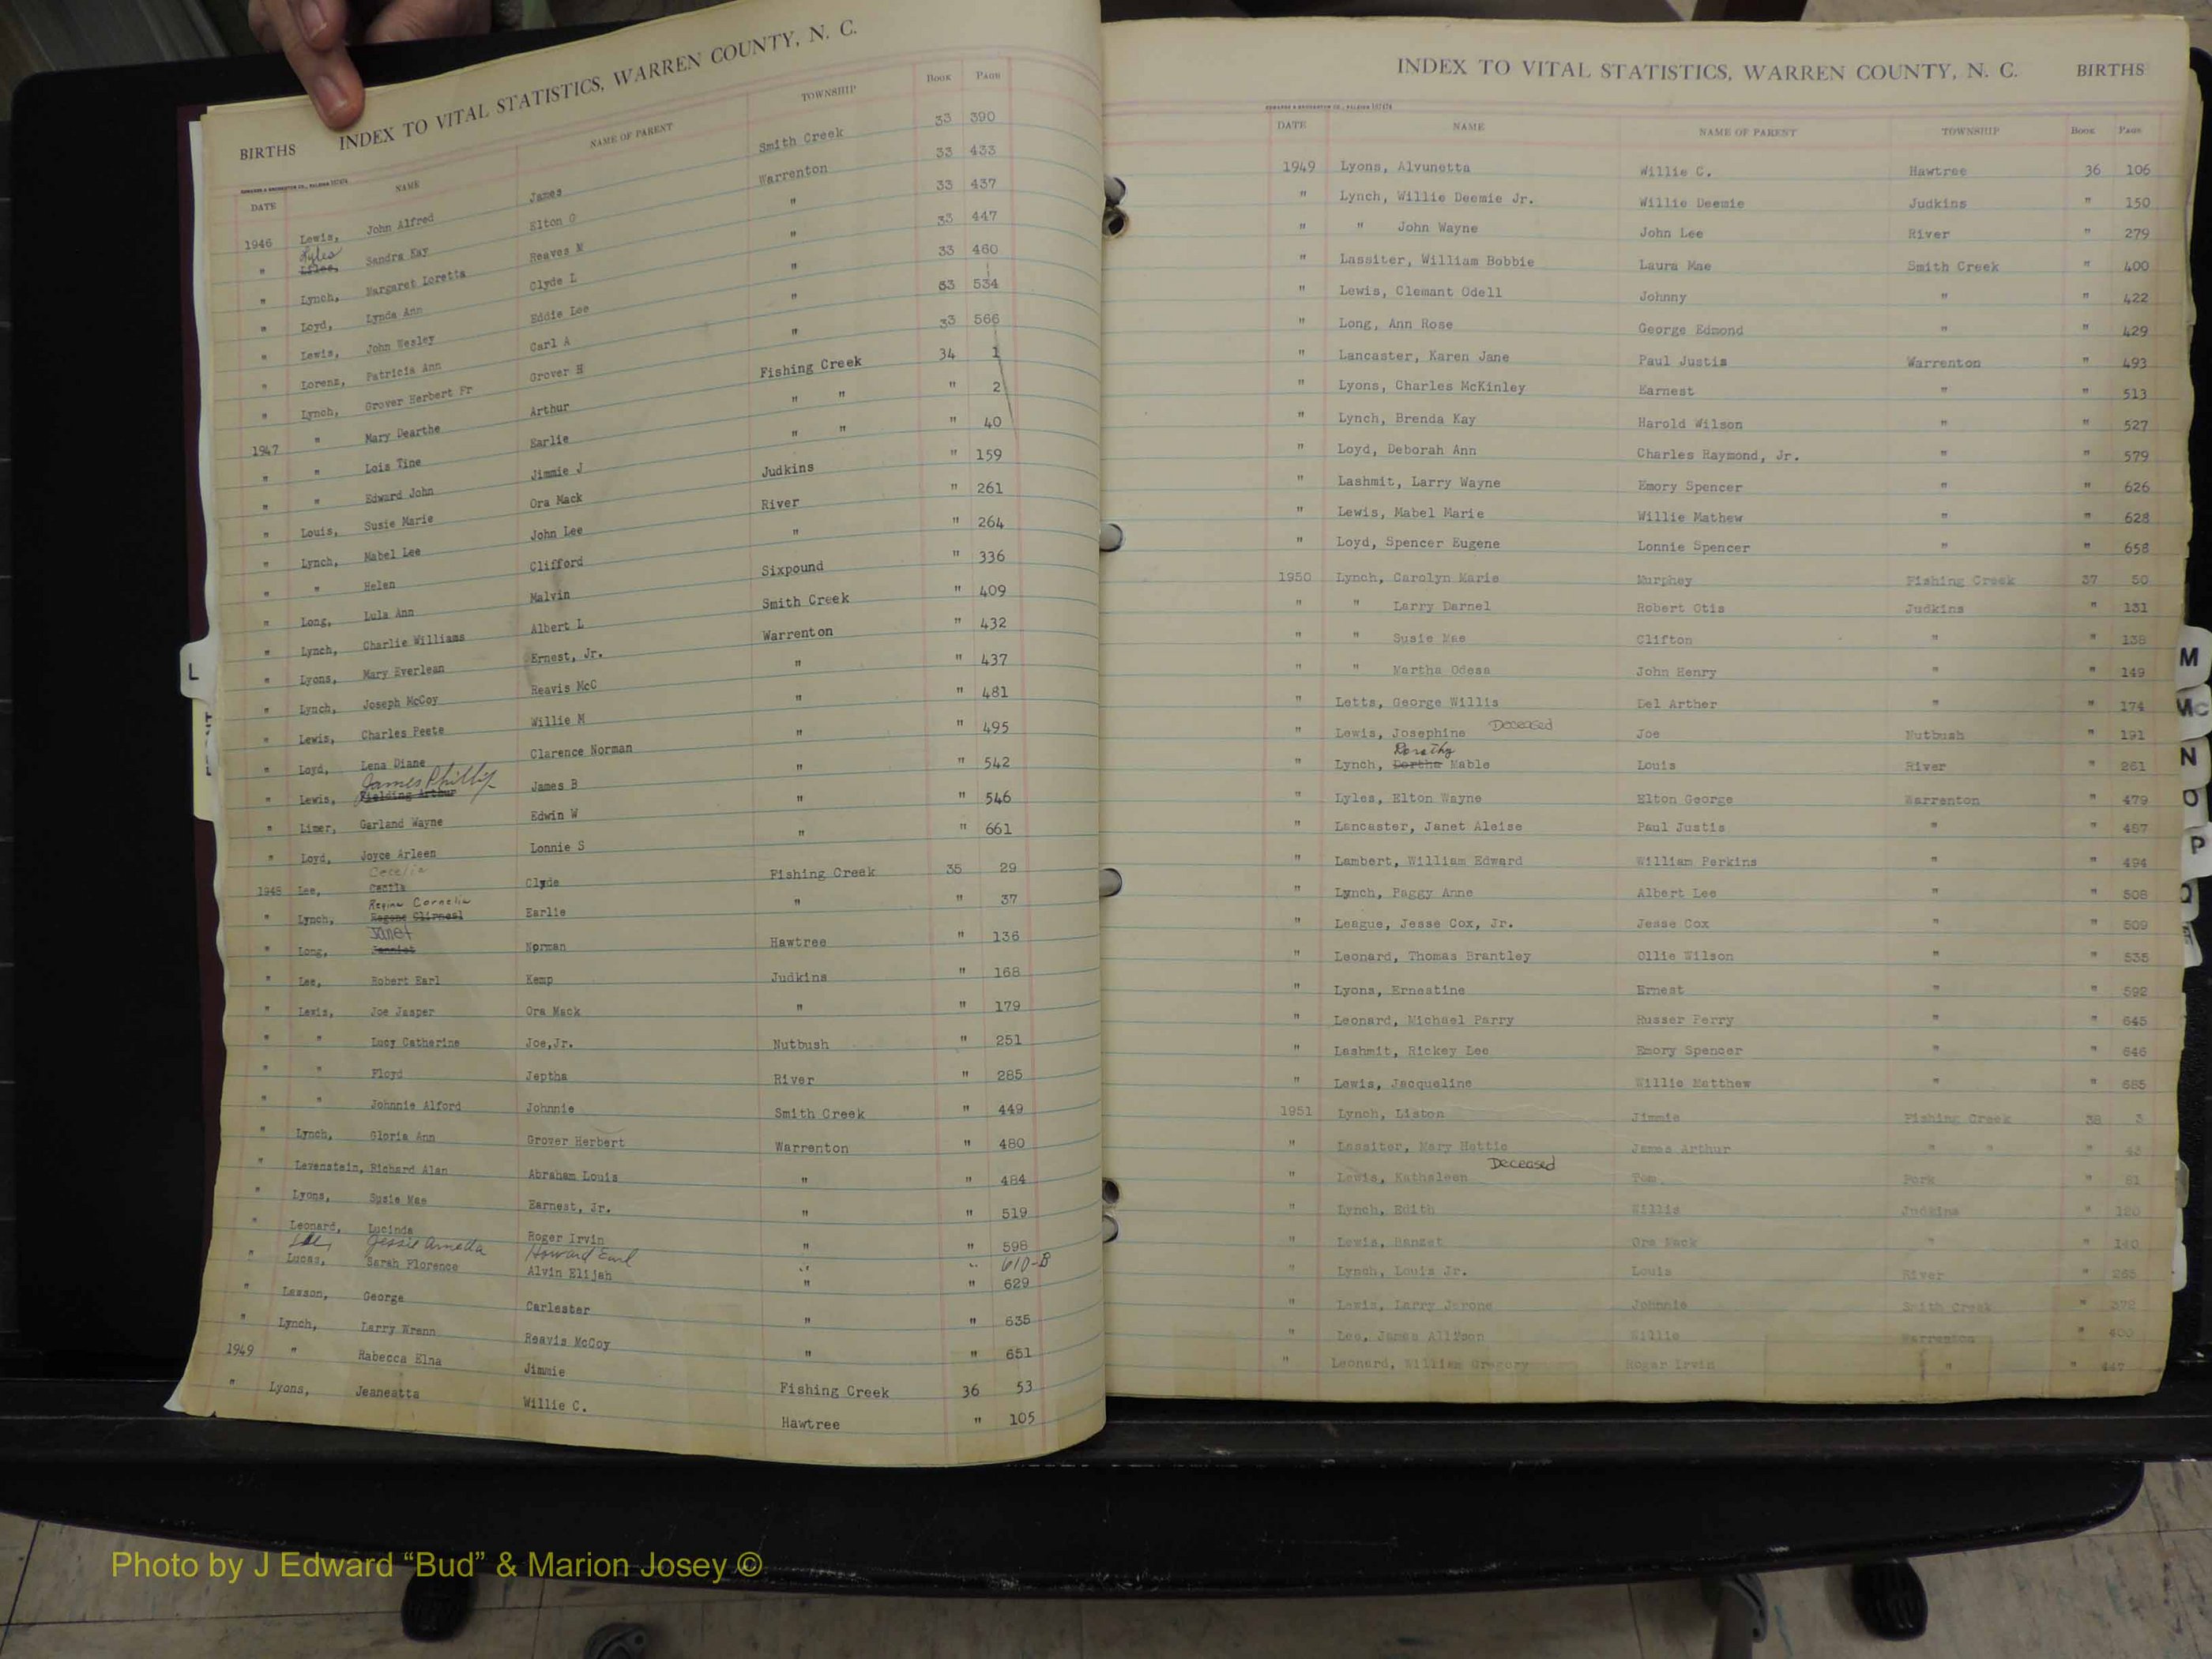 INDEX TO VITAL STATISTICS, WARREN COUNTY, N. C.
BIRTHS
EDWARDS & BROUGHTON CO., RALEIGH
DATE NAME NAME OF PARENT TOWNSHIP BOOK PAGE
1946 Lewis, John Alfred James Smith Creek 33 390
Lyles
" Liles, Sandra Kay Elton G Warrenton 33 433
" Lynch, Margaret Loretta Reaves M " 33 437
" Loyd, Lynda Ann Clyde L " 33 447
" Lewis, John Wesley Eddie Lee " 33 460
" Lorenz, Patricia Ann Carl A " 33 534
" Lynch, Grover Herbert Fr Grover H " 33 566
1947 " Mary Dearthe Arthur Fishing Creek 34 1
" " Lois Tine Earlie " " " 2
" " Edward John Jimmie J " " " 40
" Louis, Susie Marie Ora Mack Judkins " 159
" Lynch, Mabel Lee John Lee River " 261
" " Helen Clifford " " 264
" Long, Lula Ann Malvin Sixpound " 336
" Lynch, Charlie Williams Albert L Smith Creek " 409
" Lyons, Mary Everlean Ernest, Jr. Warrenton " 432
" Lynch, Joseph McCoy Reavis McC " " 437
" Lewis, Charles Peete Willie M " " 481
" Loyd, Lena Diane Clarence Norman " " 495
James Phillip
" Lewis, Fielding Arthur James B " " 542
" Limer, Garland Wayne Edwin W " " 546
" Loyd, Joyce Arleen Lonnie S " " 661
Cecelia
1948 Lee, Cecila Clyde Fishing Creek 35 29
Regina Cornelia
" Lynch, Earlie " " 37
Janet
" Long, Norman Hawtree " 136
" Lee, Robert Earl Kemp Judkins " 168
" Lewis, Joe Jasper Ora Mack " " 179
" " Lucy Catherine Joe,Jr. Nutbush " 251
" " Floyd Jeptha River " 285
" " Johnnie Alford Johnnie Smith Creek " 449
" Lynch, Gloria Ann Grover Herbert Warrenton " 480
" Levenstein, Richard Alan Abraham Louis " " 484
" Lyons, Susie Mae Earnest, Jr. " " 519
" Leonard, Lucinda Roger Irvin " " 598
Lee, Jessie Arnetta Howard Earl " " 610-B
" Lucas, Sarah Florence Alvin Elijah " " 629
" Lawson, George Carlester " " 635
" Lynch, Larry Wrenn Reavis McCoy " " 651
1949 " Rabecca Elna Jimmie Fishing Creek 36 53
" Lyons, Jeaneatta Willie C. Hawtree " 105
L
INDEX TO VITAL STATISTICS, WARREN COUNTY, N. C. BIRTHS
EDWARDS & BROUGHTON CO., RALEIGH
DATE NAME NAME OF PARENT TOWNSHIP BOOK PAGE
1949 Lyons, Alvunetta Willie C. Hawtree 36 106
" Lynch, Willie Deemie Jr. Willie Deemie Judkins " 150
" " John Wayne John Lee River " 279
" Lassiter, William Bobbie Laura Mae Smith Creek " 400
" Lewis, Clemant Odell Johnny " " 422
" Long, Ann Rose George Edmond " " 429
" Lancaster, Karen Jane Paul Justis Warrenton " 493
" Lyons, Charles McKinley Earnest " " 513
" Lynch, Brenda Kay Harold Wilson " " 527
" Loyd, Deborah Ann Charles Raymond, Jr. " " 579
" Lashmit, Larry Wayne Emory Spencer " " 626
" Lewis, Mabel Marie Willie Mathew " " 628
" Loyd, Spencer Eugene Lonnie Spencer " " 658
1950 Lynch, Carolyn Marie Murphey Fishing Creek 37 50
" " Larry Darnel Robert Otis Judkins " 131
" " Susie Mae Clifton " " 138
" " Martha Odesa John Henry " " 149
" Letts, George Willis Del Arther " " 174
" Lewis, Josephine Deceased Joe Nutbush " 191
Dorothy
" Lynch, Dortha Mable Louis River " 261
" Lyles, Elton Wayne Elton George Warrenton " 479
" Lancaster, Janet Aleise Paul Justis " " 487
" Lambert, William Edward William Perkins " " 494
" Lynch, Paggy Anne Albert Lee " " 508
" League, Jesse Cox, Jr. Jesse Cox " " 509
" Leonard, Thomas Brantley Ollie Wilson " " 535
" Lyons, Ernestine Ernest " " 592
" Leonard, Michael Parry Russer Perry " " 645
" Lashmit, Rickey Lee Emory Spencer " " 646
" Lewis, Jacqueline Willie Matthew " " 685
1951 Lynch, Liston Jimmie Fishing Creek 38 3
" Lassiter, Mary Hattie James Arthur " " " 43
Deceased
" Lewis, Kathaleen Tom Fork " 81
" Lynch, Edith Willis Judkins " 120
" Lewis, Ora Mack " " 140
" Lynch, Louis Jr. Louis River " 265
" Lewis, Larry Jerone Johnnie Smith Creek " 372
" Lee, James Allison Willie Warrenton " 400
" Leonard, William Gregory Roger Irvin " " 447
M
Mc
N
O
P
Q
Photo by J Edward “Bud” & Marion Josey ©